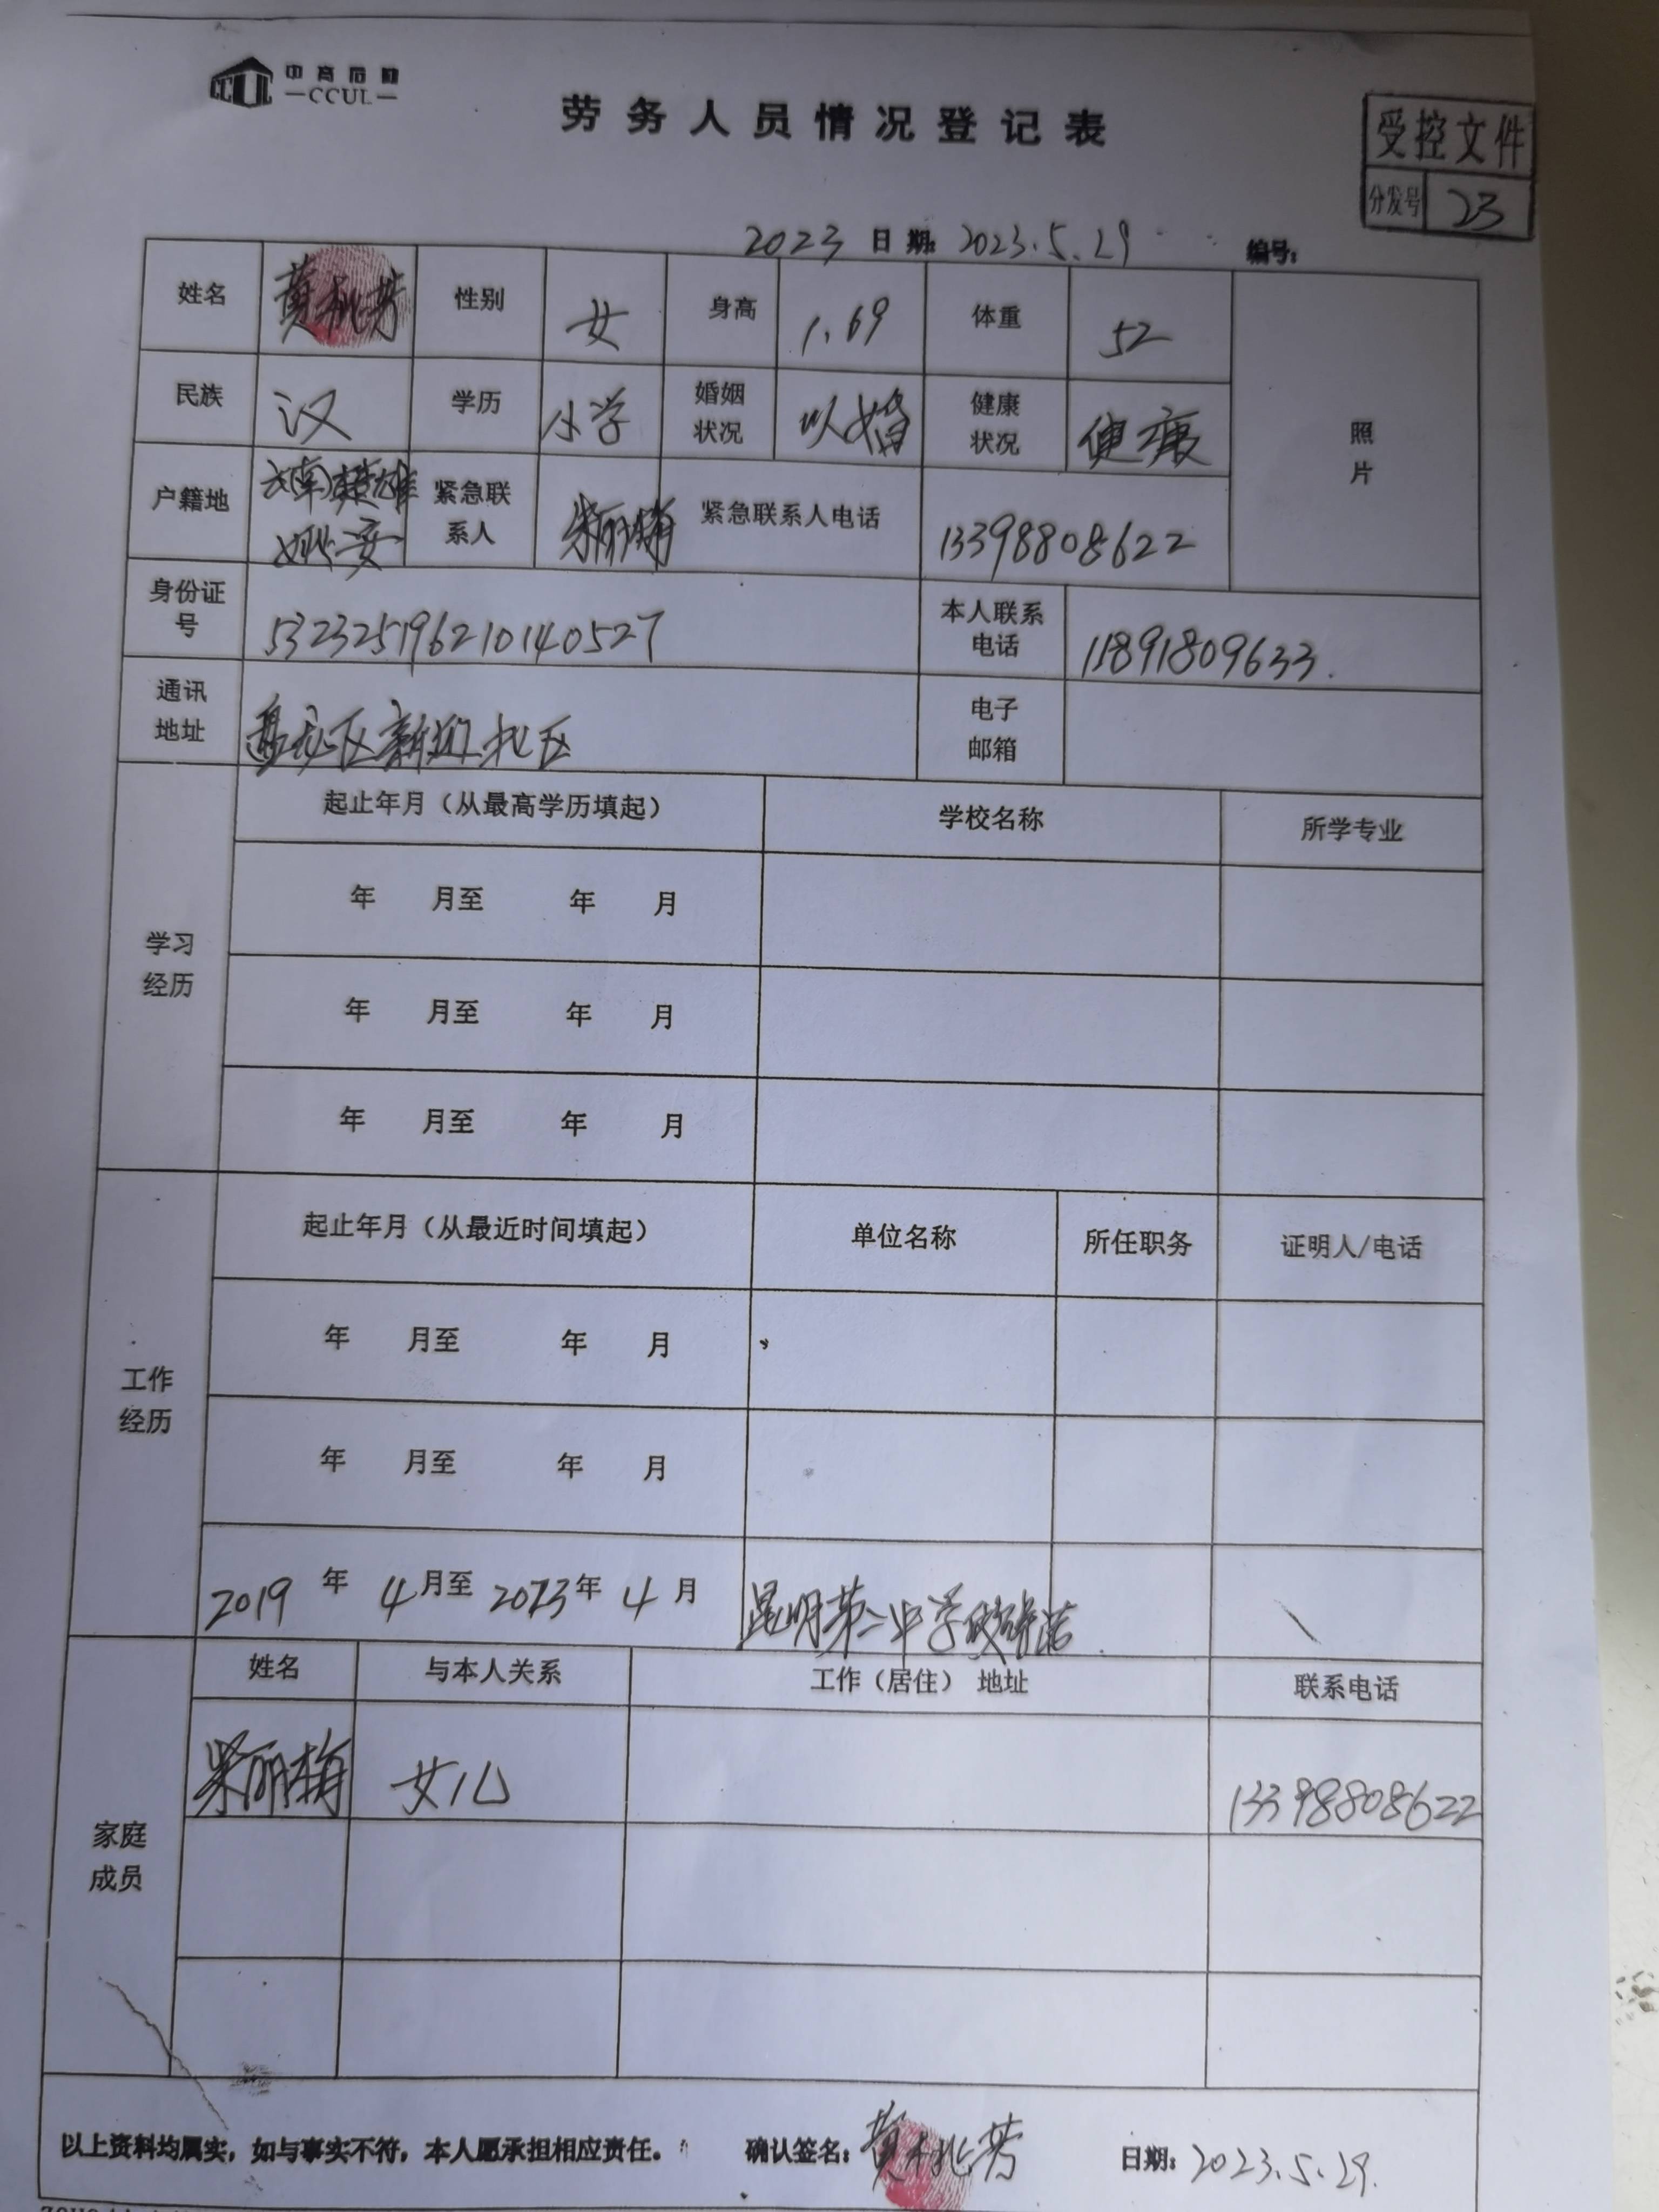 中高后勤
CCUL
劳务人员情况登记表
受控文件
分发号 23
2023 日期: 2023.5.29 编号:
姓名 黄桃芳 性别 女 身高 1.69 体重 52 照片
民族 汉 学历 小学 婚姻状况 以婚 健康状况 健康
户籍地 云南楚雄姚安 紧急联系人 朱丽梅 紧急联系人电话 13398808622
身份证号 532325196210140527 本人联系电话
通讯地址 盘龙区新迎北区 电子邮箱
学习经历
起止年月（从最高学历填起） 学校名称 所学专业
年 月至 年 月
年 月至 年 月
年 月至 年 月
工作经历
起止年月（从最近时间填起） 单位名称 所任职务 证明人/电话
年 月至 年 月
年 月至 年 月
2019 年 4 月至 2023 年 4 月 昆明第二中学
家庭成员
姓名 与本人关系 工作（居住） 地址 联系电话
朱丽梅 女儿 13398808622
以上资料均属实，如与事实不符，本人愿承担相应责任。 确认签名: 黄桃芳 日期: 2023.5.29.